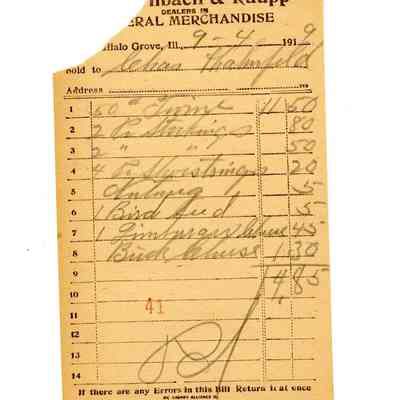 nbach & Raupp
DEALERS IN
ERAL MERCHANDISE
ffalo Grove, Ill., 9-4 1919
Sold to Chas
Address
1 50 # Twine 11 50
2 2 Pr Stockings 80
3 2 " " 50
4 4 Pr Shoestrings 20
5 Nutmeg 5
6 1 Bird Seed 5
7 1 Limburger Cheese 45
8 Brick Cheese 1.30
9 14.85
10
11 41
12
13
14
If there are any Errors in this Bill Return it at once